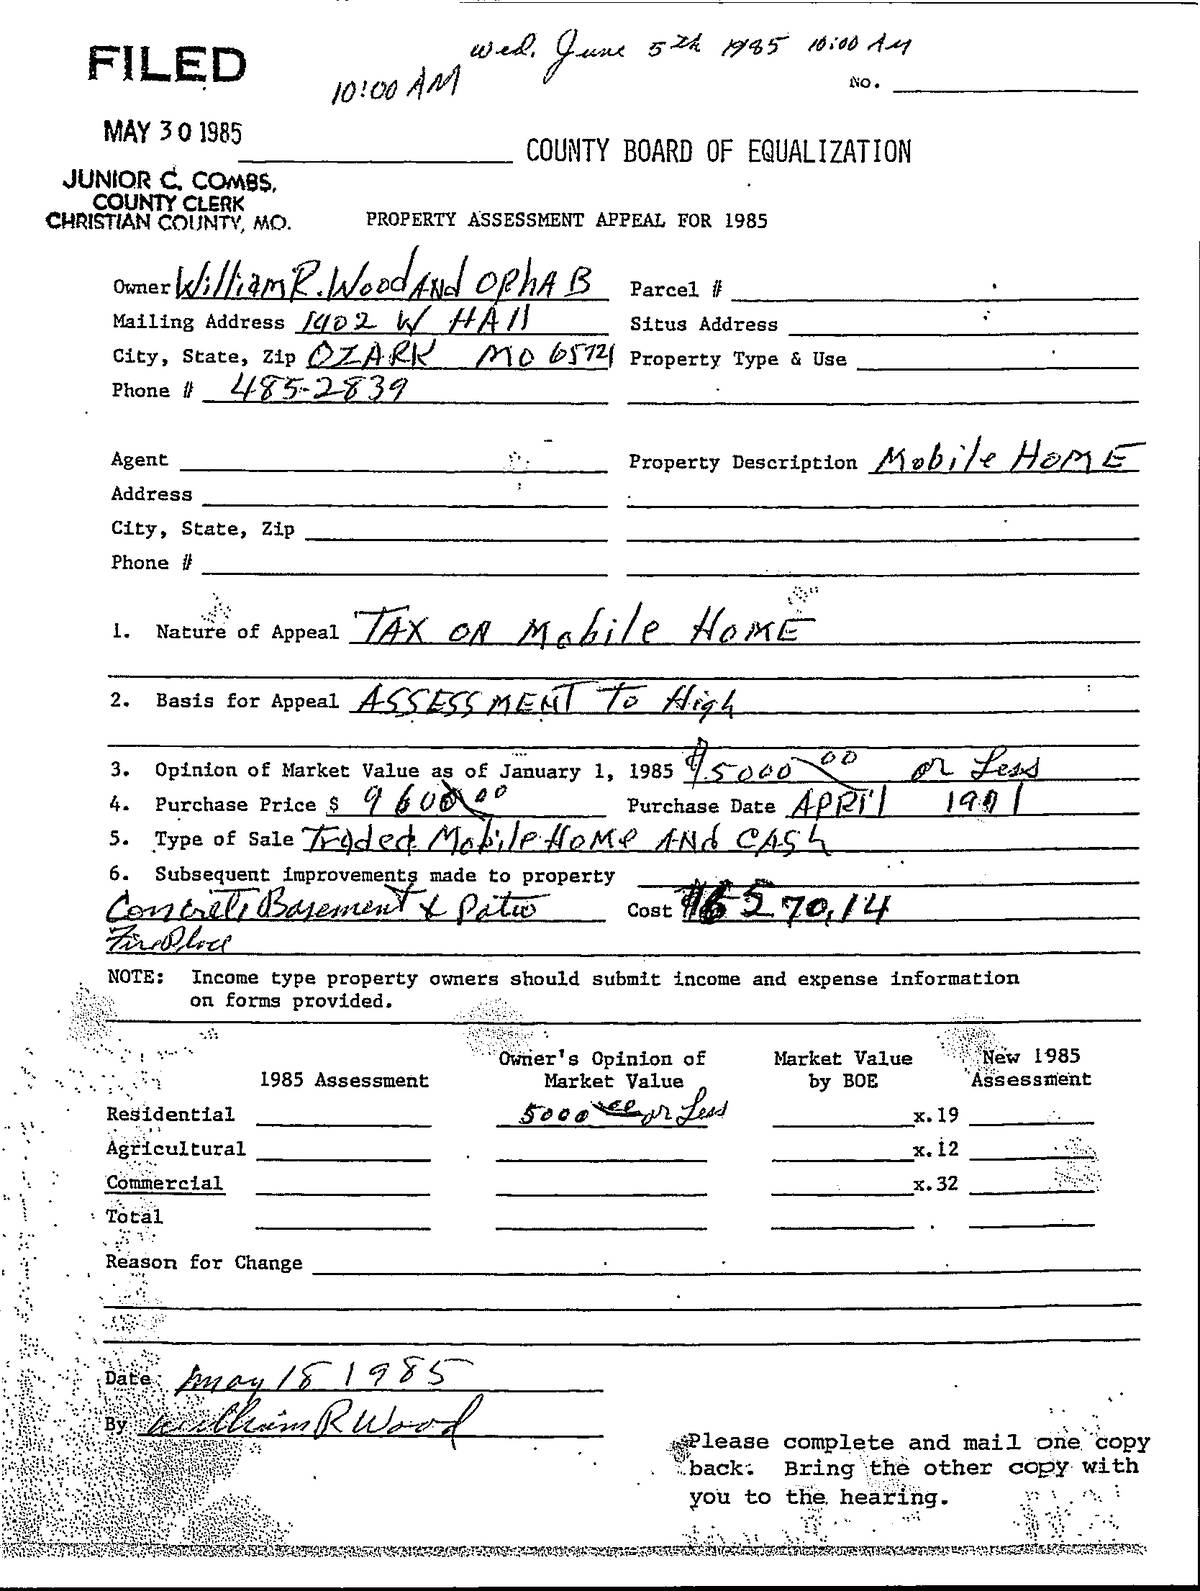 Wed. June 5th 1985 10:00 AM
FILED
10:00 AM
No.
MAY 30 1985
COUNTY BOARD OF EQUALIZATION
JUNIOR C. COMBS,
COUNTY CLERK
CHRISTIAN COUNTY, MO.
PROPERTY ASSESSMENT APPEAL FOR 1985
Owner William R. Wood AND OPhA B Parcel #
Mailing Address 1402 W HAll Situs Address
City, State, Zip OZARK MO 65721 Property Type & Use
Phone # 485-2839
Agent Property Description Mobile HOME
Address
City, State, Zip
Phone #
1. Nature of Appeal TAX ON Mobile HOME
2. Basis for Appeal ASSESSMENT To High
3. Opinion of Market Value as of January 1, 1985 $5000 00 or Less
4. Purchase Price $ 9600 00 Purchase Date APRIl
5. Type of Sale Traded Mobile HoMe ANd CASh
6. Subsequent improvements made to property
Concrete Basement & Patio Cost 70.14
FirePlace
NOTE: Income type property owners should submit income and expense information
on forms provided.
1985 Assessment Owner's Opinion of Market Value Market Value by BOE New 1985 Assessment
Residential 5000 00 or Less x.19
Agricultural x.12
Commercial x.32
Total
Reason for Change
Date May 18 1985
By William R Wood
Please complete and mail one copy
back. Bring the other copy with
you to the hearing.